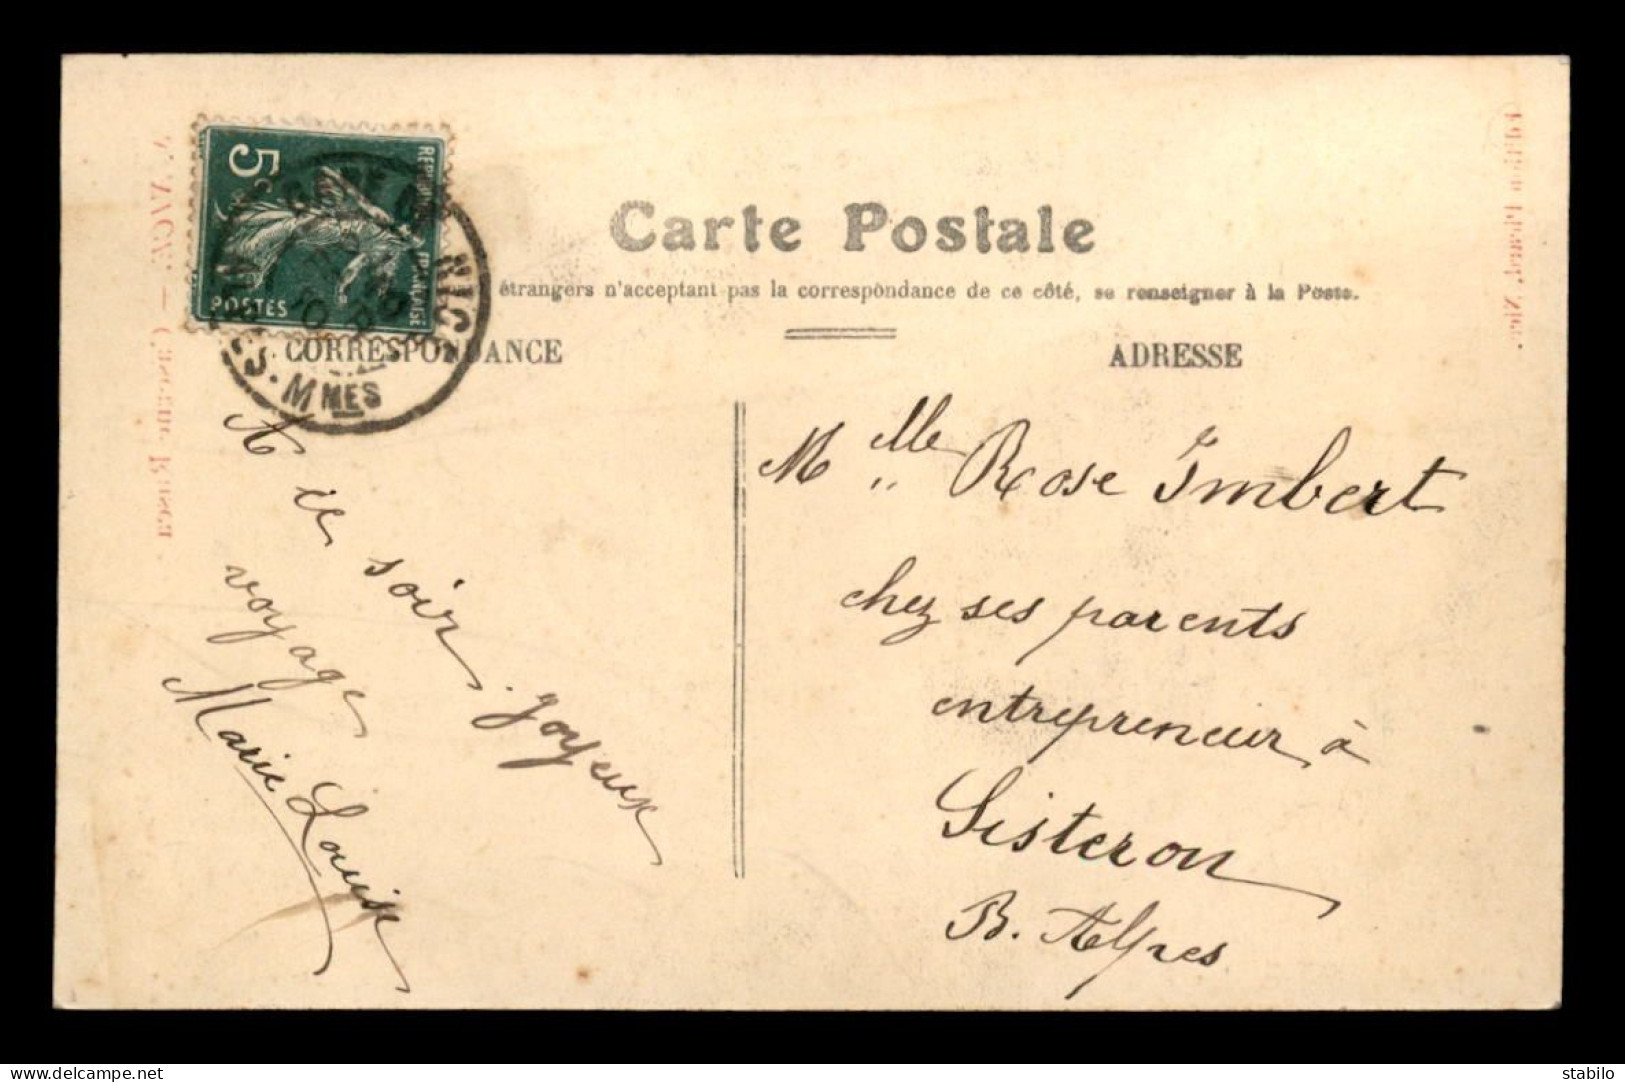 5c
REPUBLIQUE FRANÇAISE
POSTES
NICE
S. MMES
Carte Postale
étrangers n'acceptant pas la correspondance de ce côté, se renseigner à la Poste.
CORRESPONDANCE
ADRESSE
A ce soir, joyeux
voyage
Marie Louise
Melle Rose Imbert
chez ses parents
entrepreneur à
Sisteron
B. Alpes
delcampe.net
stabilo